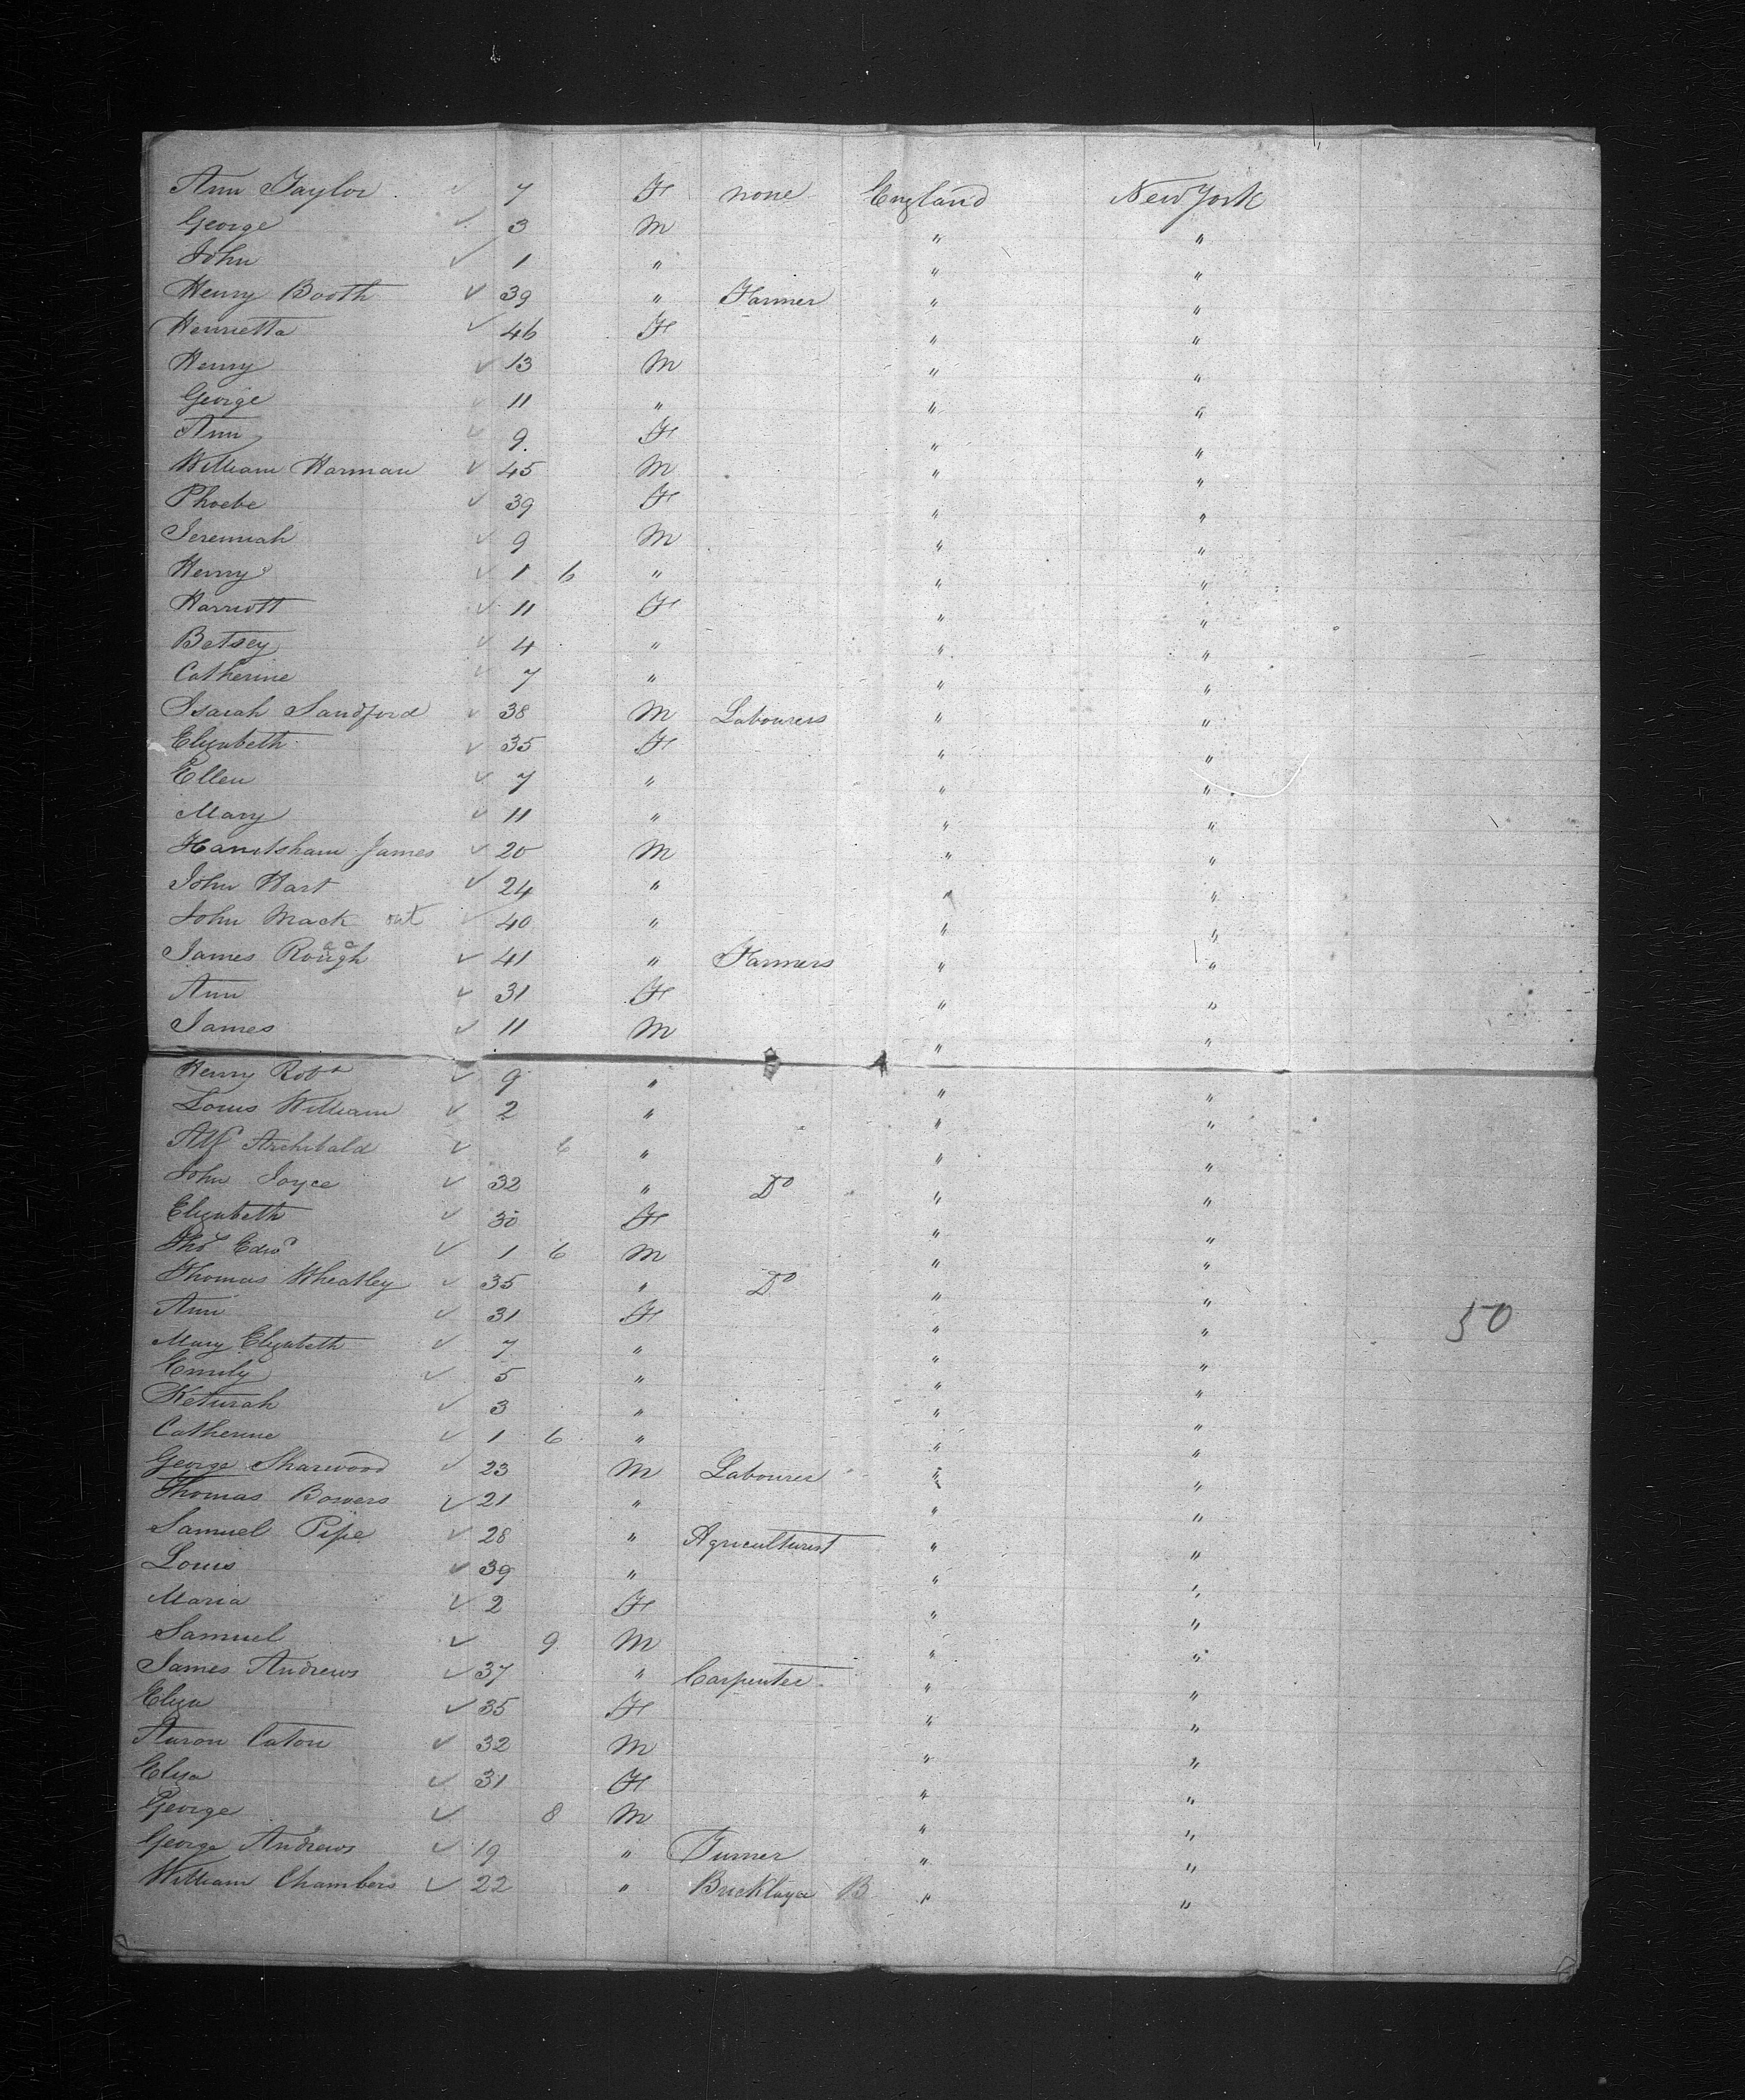 Ann Taylor ✓ 7 F none England New York
George ✓ 3 M " "
John ✓ 1 " " "
Henry Booth ✓ 39 " Farmer " "
Henrietta ✓ 46 F " "
Henry ✓ 13 M " "
George ✓ 11 " " "
Ann ✓ 9 F " "
William Harman ✓ 45 M " "
Phoebe ✓ 39 F " "
Jeremiah ✓ 9 M " "
Henry ✓ 1 6 " " "
Harriott ✓ 11 F " "
Betsey ✓ 4 " " "
Catherine ✓ 7 " " "
Isaiah Sandford ✓ 38 M Labourers " "
Elizabeth ✓ 35 F " "
Ellen ✓ 7 " " "
Mary ✓ 11 " " "
James ✓ 20 M " "
John Hart ✓ 24 " " "
John Mack out ✓ 40 " " "
James Rough ✓ 41 " Farmers " "
Ann ✓ 31 F " "
James ✓ 11 M " "
Henry Robt ✓ 9 " " "
Louis William ✓ 2 " " "
Alf Archibald ✓ 6 " " "
John Joyce ✓ 32 " Do " "
Elizabeth ✓ 30 F " "
Thos Edwd ✓ 1 6 M " "
Thomas Wheatley ✓ 35 " Do " "
Ann ✓ 31 F " " 50
Mary Elizabeth ✓ 7 " " "
Emily ✓ 5 " " "
Keturah ✓ 3 " " "
Catherine ✓ 1 6 " " "
George Sharwood ✓ 23 M Labourer " "
Thomas Bowers ✓ 21 " " "
Samuel Pipe ✓ 28 " Agriculturist " "
Louis ✓ 39 " " "
Maria ✓ 2 F " "
Samuel ✓ 9 M " "
James Andrews ✓ 37 " Carpenter " "
Eliza ✓ 35 F " "
Aaron Caton ✓ 32 M " "
Eliza ✓ 31 F " "
George ✓ 8 M " "
George Andrews ✓ 19 " Turner " "
William Chambers ✓ 22 " Bricklayer B " "